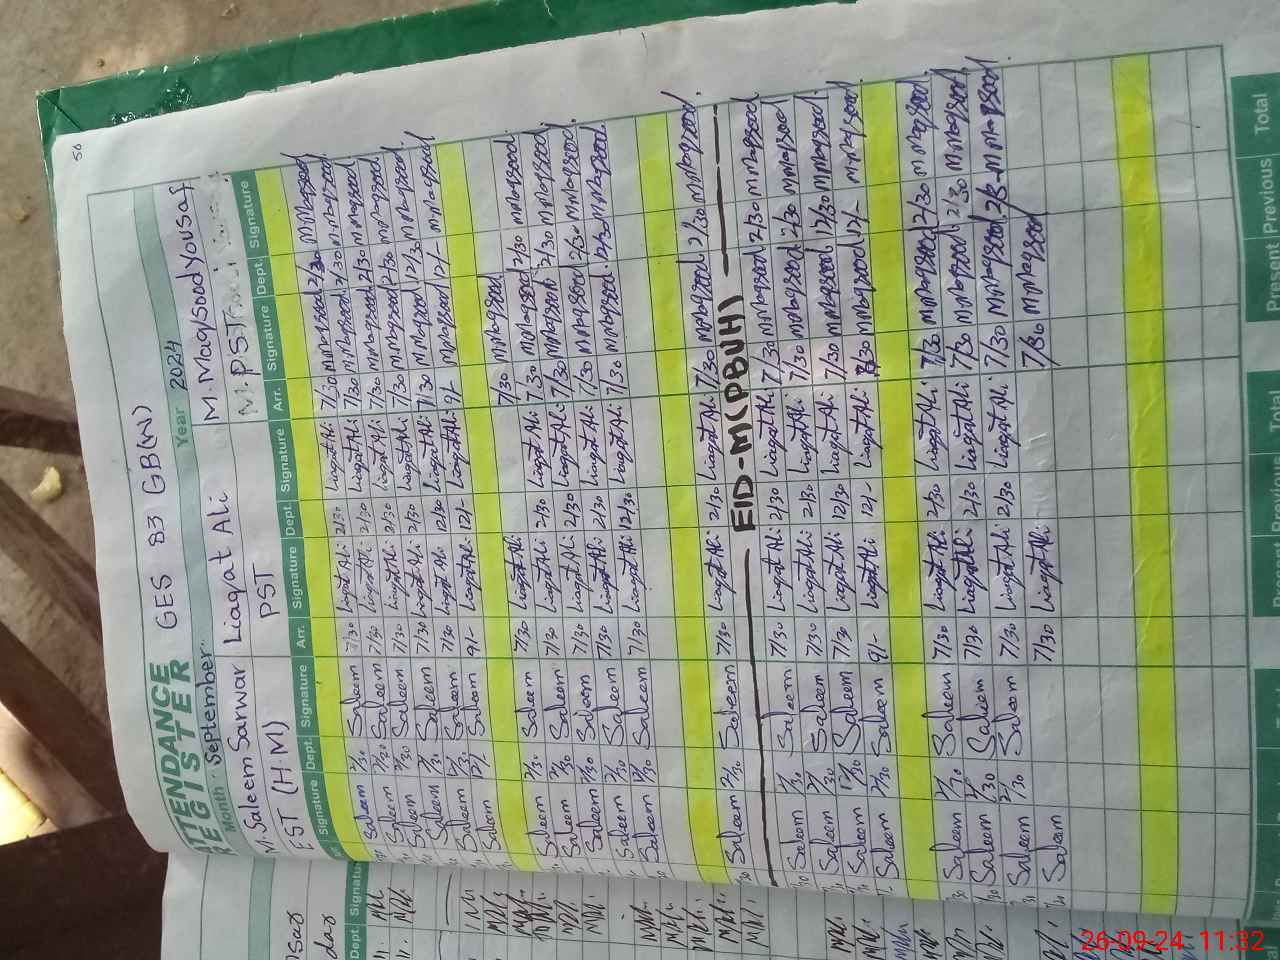 56
ATTENDANCE REGISTER
GES 83 GB(W)
Month September Year 2024
M. Saleem Sarwar Liaqat Ali M. Maqsood Yousaf
EST (H.M) PST PST
Signature Dept. Signature Arr. Signature Dept. Signature Arr. Signature Dept. Signature
Saleem 2/30 Saleem 7/30 Liaqat Ali 2/30 Liaqat Ali 7/30 MMaqsood 2/30 MMaqsood
Saleem 2/30 Saleem 7/30 Liaqat Ali 2/30 Liaqat Ali 7/30 MMaqsood 2/30 MMaqsood
Saleem 2/30 Saleem 7/30 Liaqat Ali 2/30 Liaqat Ali 7/30 MMaqsood 2/30 MMaqsood
Saleem 2/30 Saleem 7/30 Liaqat Ali 2/30 Liaqat Ali 7/30 MMaqsood 2/30 MMaqsood
Saleem 12/30 Saleem 7/30 Liaqat Ali 12/30 Liaqat Ali 7/30 MMaqsood 12/30 MMaqsood
Saleem 12/- Saleem 9/- Liaqat Ali 12/- Liaqat Ali 9/- MMaqsood 12/- MMaqsood
Saleem 2/30 Saleem 7/30 Liaqat Ali 7/30 MMaqsood
Saleem 2/30 Saleem 7/30 Liaqat Ali 2/30 Liaqat Ali 7/30 MMaqsood 2/30 MMaqsood
Saleem 2/30 Saleem 7/30 Liaqat Ali 2/30 Liaqat Ali 7/30 MMaqsood 2/30 MMaqsood
Saleem 2/30 Saleem 7/30 Liaqat Ali 2/30 Liaqat Ali 7/30 MMaqsood 2/30 MMaqsood
Saleem 12/30 Saleem 7/30 Liaqat Ali 12/30 Liaqat Ali 7/30 MMaqsood 12/30 MMaqsood
Saleem 2/30 Saleem 7/30 Liaqat Ali 2/30 Liaqat Ali 7/30 MMaqsood 2/30 MMaqsood
EID-M(PBUH)
Saleem 2/30 Saleem 7/30 Liaqat Ali 2/30 Liaqat Ali 7/30 MMaqsood 2/30 MMaqsood
Saleem 2/30 Saleem 7/30 Liaqat Ali 2/30 Liaqat Ali 7/30 MMaqsood 2/30 MMaqsood
Saleem 12/30 Saleem 7/30 Liaqat Ali 12/30 Liaqat Ali 7/30 MMaqsood 12/30 MMaqsood
Saleem 2/30 Saleem 9/- Liaqat Ali 12/- Liaqat Ali MMaqsood 12/- MMaqsood
Saleem 2/30 Saleem 7/30 Liaqat Ali 2/30 Liaqat Ali 7/30 MMaqsood 2/30 MMaqsood
Saleem 2/30 Saleem 7/30 Liaqat Ali 2/30 Liaqat Ali 7/30 MMaqsood 2/30 MMaqsood
Saleem 2/30 Saleem 7/30 Liaqat Ali 2/30 Liaqat Ali 7/30 MMaqsood MMaqsood
Saleem 7/30 Liaqat Ali 7/30 MMaqsood
Present Previous Total Present Previous Total
Dept. Signatu
26-09-24 11:32